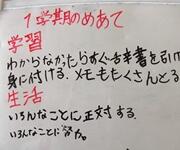 1学期のめあて
学習
わからなかったらすぐ辞書を引
身に付ける、メモもたくさんとる
生活
いろんなことに正対する。
いろんなことに努力。